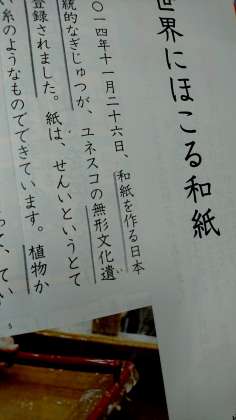 世界にほこる和紙
〇一四年十一月二十六日、和紙を作る日本
統的なぎじゅつが、ユネスコの無形文化遺
登録されました。紙は、せんいというとて
い糸のようなものでできています。植物か